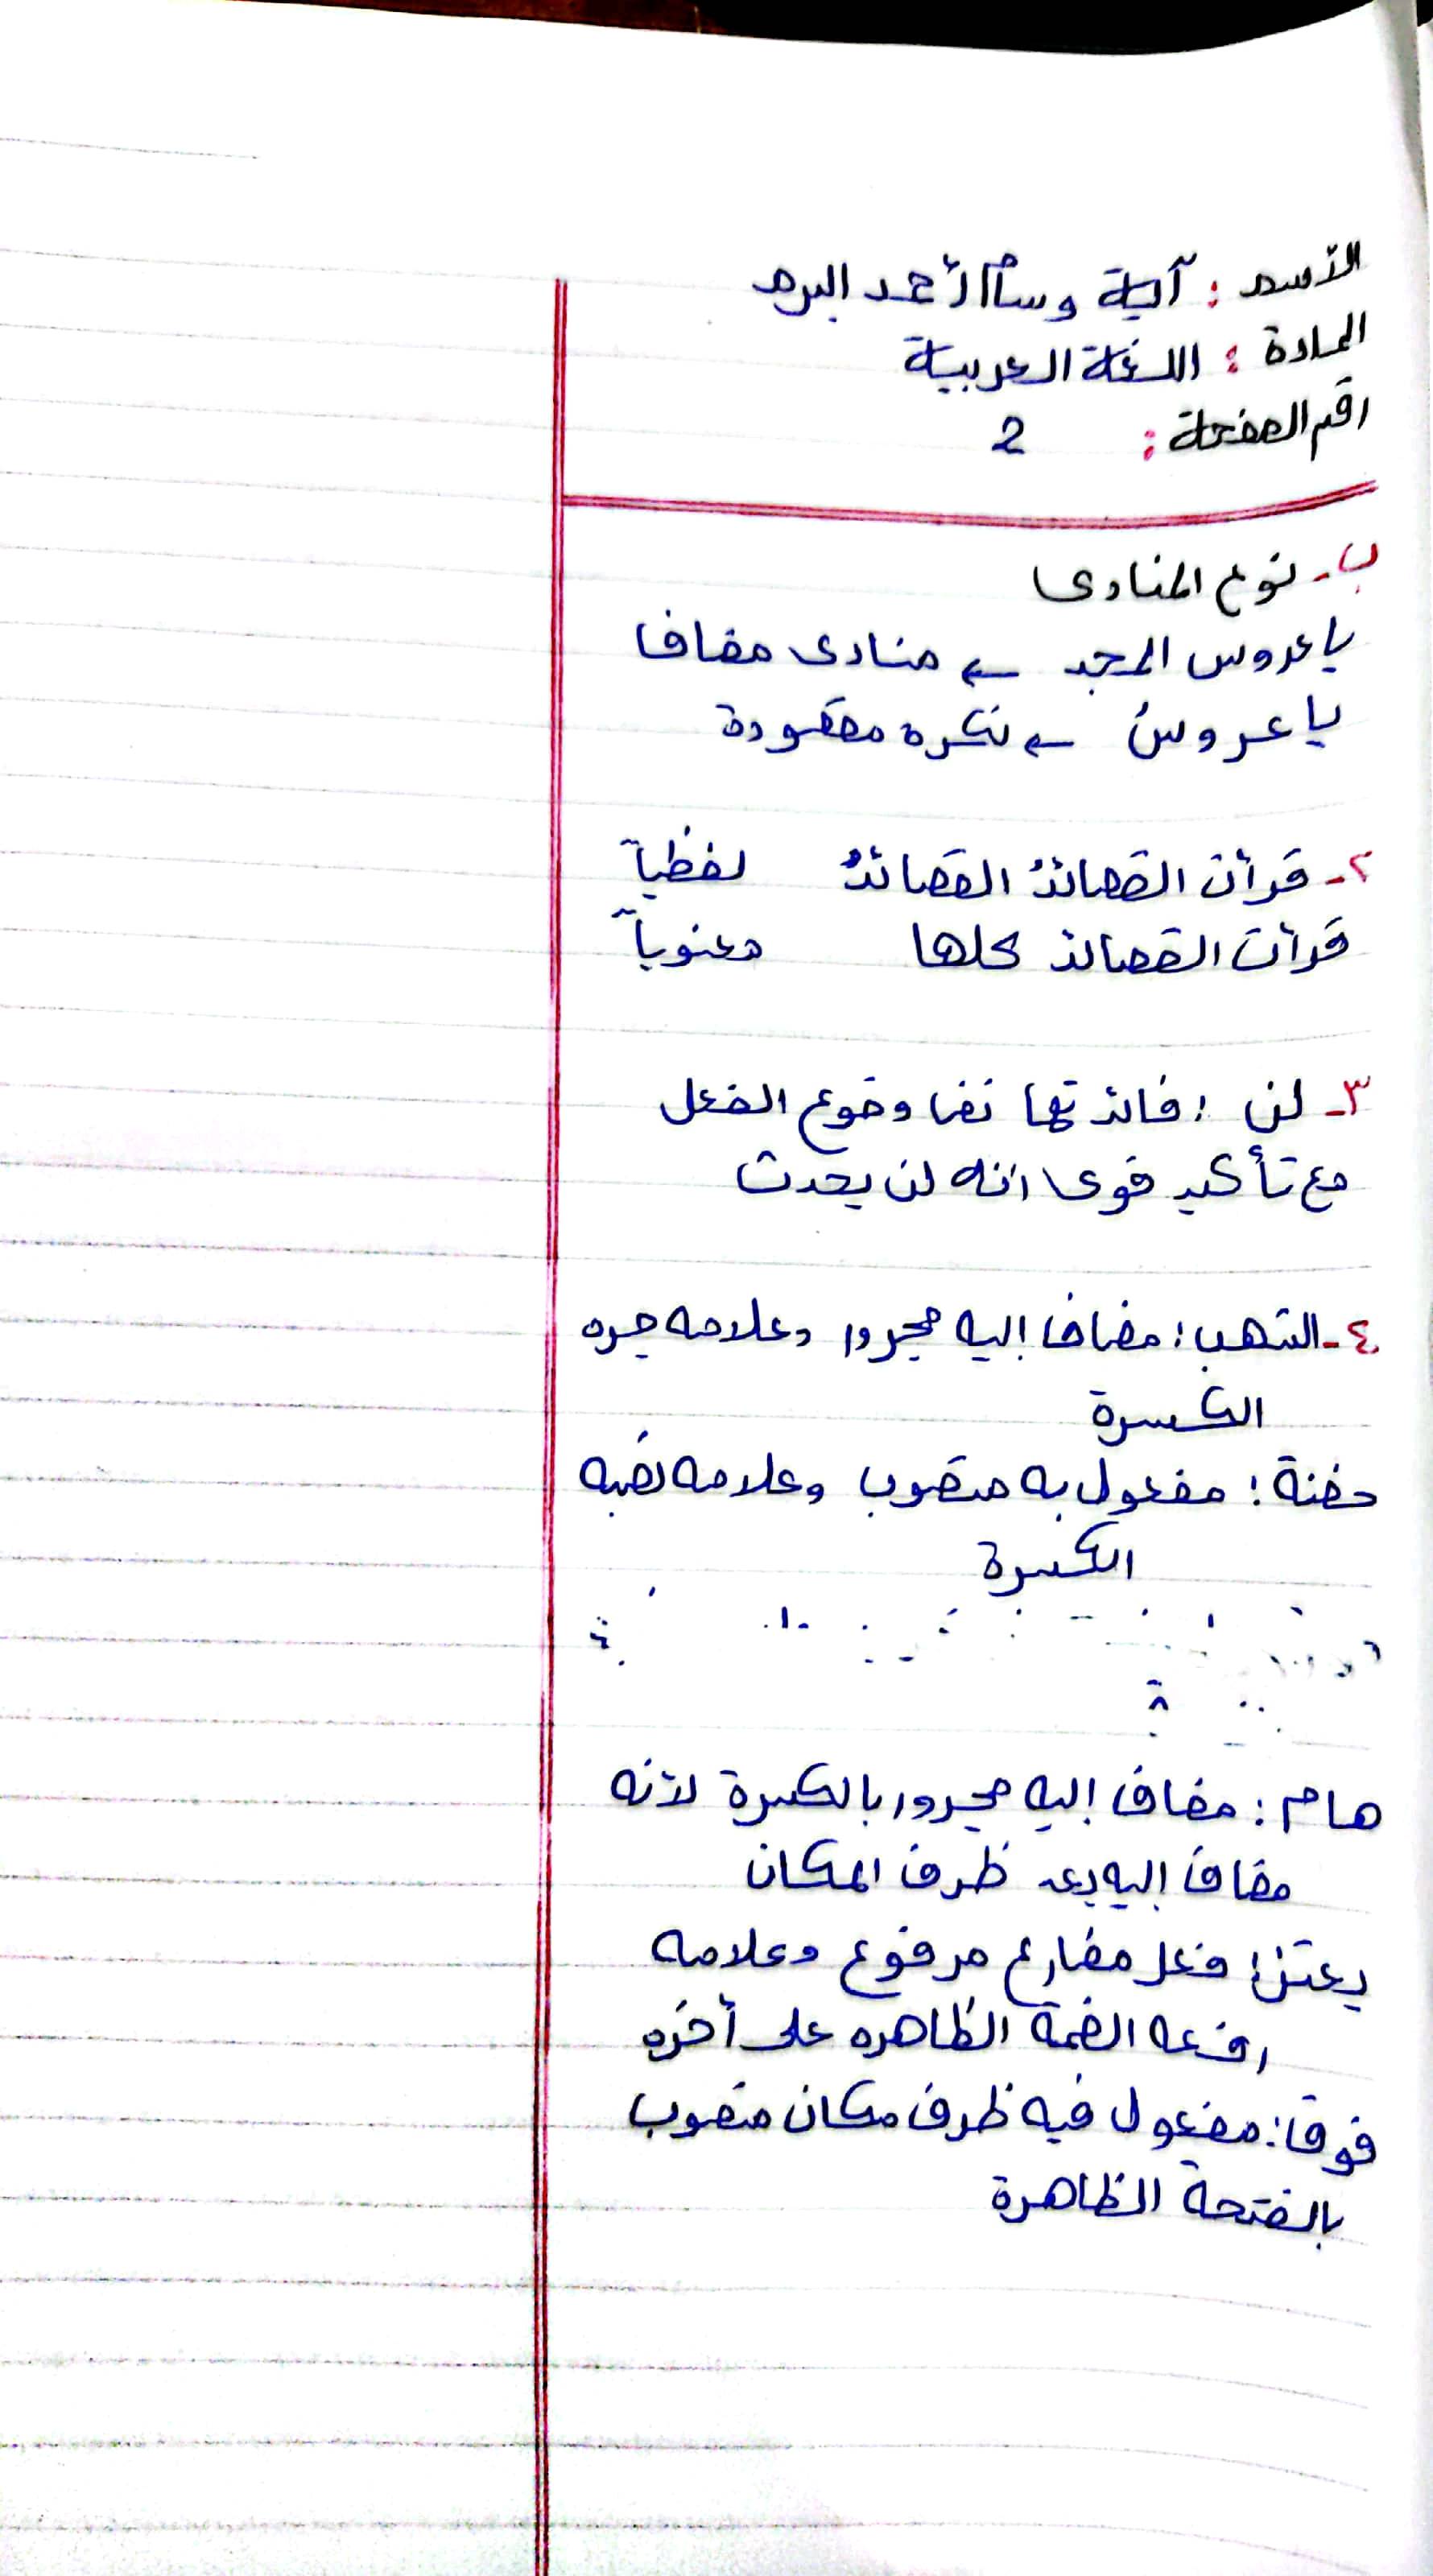 الأسم : آية وسام أحمد البرم
المادة : اللغة العربية
رقم الصفحة : 2
ب- نوع المنادى
يا عروس المجد ← منادى مضاف
يا عروسُ ← نكره مقصودة
٢- قرأت القصائدُ القصائدُ لفظياً
قرأت القصائد كلها معنوياً
٣- لن : فائدتها نفي وقوع الفعل
مع تأكيد قوي أنه لن يحدث
٤- الشهب : مضاف إليه مجرور وعلامه جره
الكسرة
حفنة : مفعول به منصوب وعلامه نصبه
الكسرة
هام : مضاف إليه مجرور بالكسرة لأنه
مضاف إليه بعد ظرف المكان
يعتز : فعل مضارع مرفوع وعلامه
رفعه الضمة الظاهره على أخره
فوق : مفعول فيه ظرف مكان منصوب
بالفتحة الظاهرة